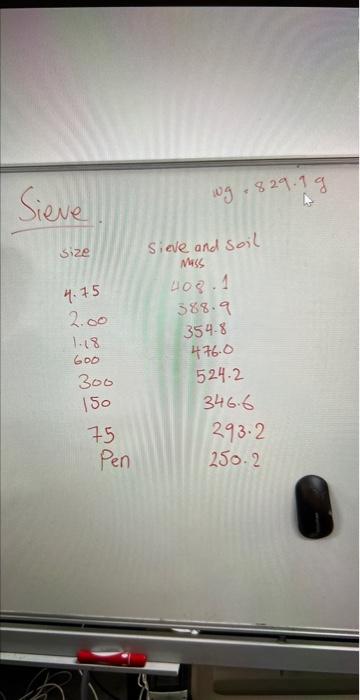 Sieve.
wg = 829.9 g
Size
Sieve and soil
Mass
4.75 408.1
2.00 388.9
1.18 354.8
600 476.0
300 524.2
150 346.6
75 293.2
Pen 250.2